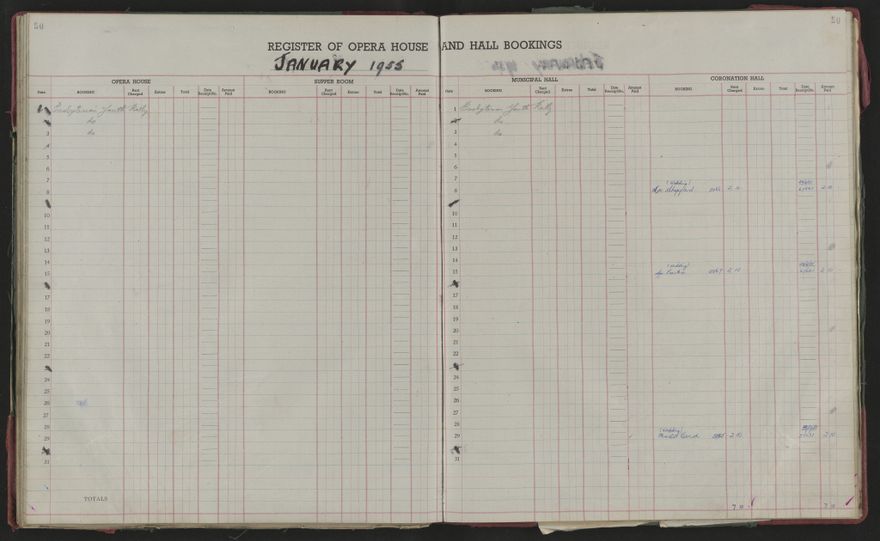 50
50
REGISTER OF OPERA HOUSE AND HALL BOOKINGS
JANUARY 1955
OPERA HOUSE SUPPER ROOM MUNICIPAL HALL CORONATION HALL
Date BOOKING Rent Charged Extras Total Date Receipt No. Amount Paid BOOKING Rent Charged Extras Total Date Receipt No. Amount Paid
Date BOOKING Rent Charged Extras Total Date Receipt No. Amount Paid BOOKING Rent Charged Extras Total Date Receipt No. Amount Paid
Presbyterian Youth Rally 1 Presbyterian Youth Rally
do do
3 do 3 do
4 4
5 5
6 6
7 7 (Wedding)
8 8 2 10 2 10
10 10
11 11
12 12
13 13
14 14 (Wedding)
15 15 2 10 2 10
17 17
18 18
19 19
20 20
21 21
22 22
24 24
25 25
26 26
27 27
28 28 (Wedding)
29 29 2 10 2 10
31 31
TOTALS
7 10 7 10